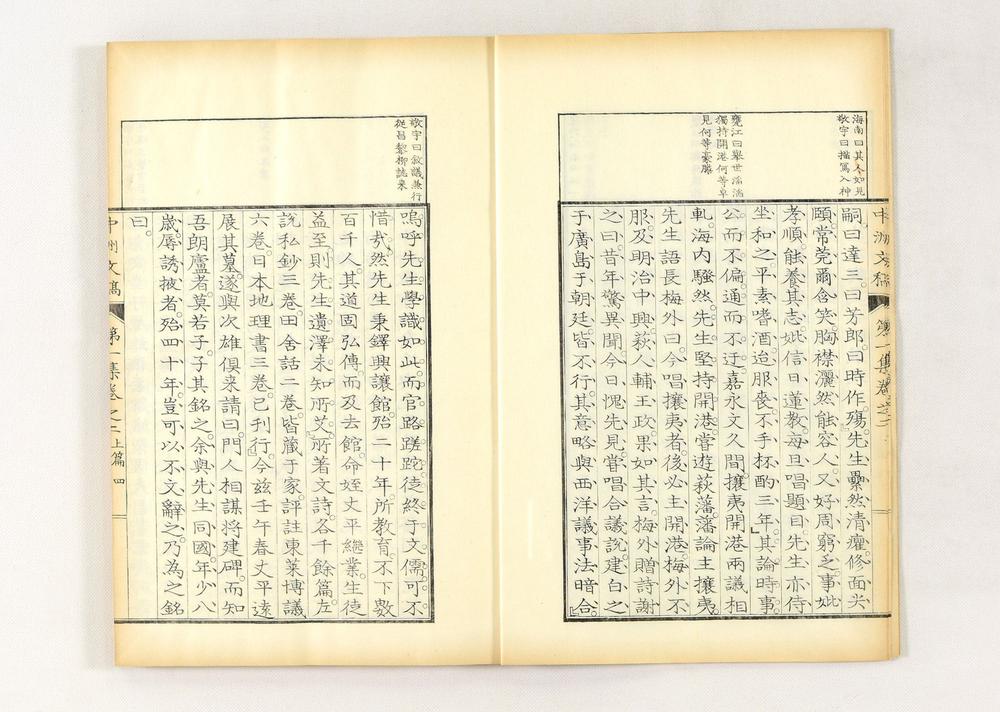 海南曰其人如見
敬宇曰描寫入神
甕江曰擧世滔滔
獨持開港何等卓
見何等豪膓
中洲文稿 第一集卷之二
嗣曰達三曰芳郎曰時作殤先生纍然清癯修面尖
頤常莞爾含笑胸襟灑然能容人又好周窮乏事妣
孝順能養其志妣信日蓮教每旦唱題目先生亦侍
坐和之平素嗜酒迨服喪不手杯酌三年其論時事
公而不偏通而不迂嘉永文久間攘夷開港兩議相
軋海内騷然先生堅持開港甞遊萩藩藩論主攘夷
先生語長梅外曰今唱攘夷者後必主開港梅外不
服及明治中興萩人輔王政果如其言梅外贈詩謝
之曰昔年驚異聞今日愧先見甞唱合議説建白之
于廣島于朝廷皆不行其意略與西洋議事法暗合
敬宇曰敘議兼行
從昌黎柳誌来
嗚呼先生學識如此而官路蹉跎徒終于文儒可不
惜哉然先生秉鐸興讓館殆二十年所教育不下數
百千人其道固弘傳而及去館命姪丈平繼業生徒
益至則先生遺澤未知所艾所著文詩各千餘篇左
説私鈔三巻田舍話二巻皆藏于家評註東萊博議
六卷日本地理書三卷已刊行今兹壬午春丈平遠
展其墓遂與次雄俱来請曰門人相謀将建碑而知
吾朗廬者莫若子子其銘之余與先生同國年少八
歳辱誘掖者殆四十年豈可以不文辭之乃為之銘
曰
中洲文稿 第一集卷之二上篇 四